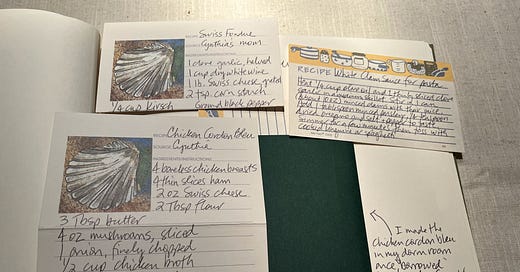 RECIPE Swiss Fondue
SOURCE Cynthia's mom
1 clove garlic, halved
1 cup dry white wine
1 lb. Swiss cheese, grated
2 tsp corn starch
1/4 cup Kirsch Ground black pepper
RECIPE White Clam Sauce for pasta
Heat 1/4 cup olive oil and 1 thinly sliced clove
garlic in a saucepan/skillet. Stir in 1 can
(about 10 oz) minced clams with their juice.
Add 1 tablespoon parsley, 1/4 teaspoon
dried oregano and salt & pepper to taste.
Simmer for a few minutes, then toss with
cooked linguine or spaghetti
RECIPE Chicken Cordon Bleu
SOURCE Cynthia
INGREDIENTS/INSTRUCTIONS
4 boneless chicken breasts
4 thin slices ham
2 oz Swiss cheese
2 Tbsp flour
3 Tbsp butter
4 oz mushrooms, sliced
1 onion, finely chopped
1/2 cup chicken broth
I made the
chicken cordon bleu
in my dorm room
once "borrowed"